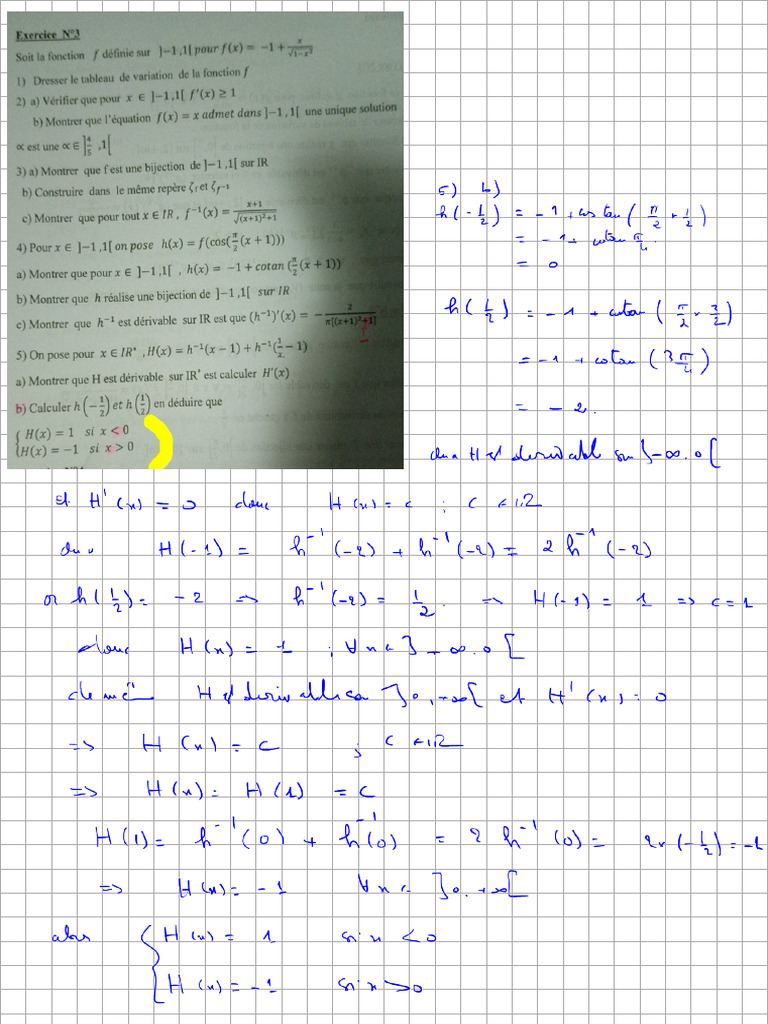 Exercice N°3
Soit la fonction f définie sur ]−1,1[ pour f(x) = −1 + x/√(1−x²)
1) Dresser le tableau de variation de la fonction f
2) a) Vérifier que pour x ∈ ]−1,1[ f'(x) ≥ 1
b) Montrer que l'équation f(x) = x admet dans ]−1,1[ une unique solution
∝ est une ∝∈ ]4/5 ,1[
3) a) Montrer que f est une bijection de ]−1,1[ sur IR
b) Construire dans le même repère ζf et ζf⁻¹
c) Montrer que pour tout x ∈ IR , f⁻¹(x) = (x+1)/√((x+1)²+1)
4) Pour x ∈ ]−1,1[ on pose h(x) = f(cos(π/2 (x + 1)))
a) Montrer que pour x ∈ ]−1,1[ , h(x) = −1 + cotan (π/2 (x + 1))
b) Montrer que h réalise une bijection de ]−1,1[ sur IR
c) Montrer que h⁻¹ est dérivable sur IR est que (h⁻¹)'(x) = − 2/(π[(x+1)²+1])
5) On pose pour x ∈ IR* , H(x) = h⁻¹(x − 1) + h⁻¹(1/x − 1)
a) Montrer que H est dérivable sur IR* est calculer H'(x)
b) Calculer h(−1/2) et h(1/2) en déduire que
{ H(x) = 1 si x < 0
H(x) = −1 si x > 0
5) b)
h(-1/2) = -1 + cotan (π/2 × 1/2)
= -1 + cotan π/4
= 0
h(1/2) = -1 + cotan (π/2 × 3/2)
= -1 + cotan (3π/4)
= -2.
donc H est derivable sur ]-∞.0[
et H'(x) = 0 donc H(x) = c ; c ∈ IR
donc H(-1) = h⁻¹(-2) + h⁻¹(-2) = 2 h⁻¹(-2)
or h(1/2) = -2 => h⁻¹(-2) = 1/2. => H(-1) = 1 => c = 1
donc H(x) = 1 ; ∀x ∈ ]-∞.0[
de mê H est derivable sur ]0,+∞[ et H'(x) = 0
=> H(x) = c ; c ∈ IR
=> H(x) = H(1) = c
H(1) = h⁻¹(0) + h⁻¹(0) = 2 h⁻¹(0) = 2×(-1/2) = -1
=> H(x) = -1 ∀x ∈ ]0.+∞[
alors { H(x) = 1 si x < 0
H(x) = -1 si x > 0